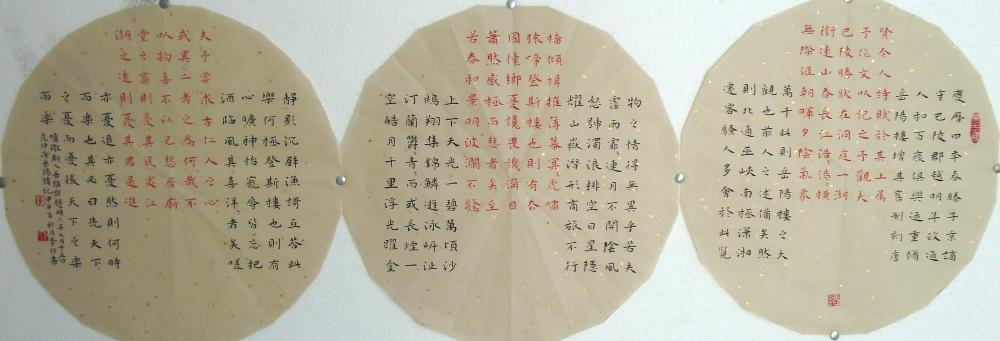 慶曆四年春滕子京謫
守巴陵郡越明年政通
人和百廢俱興迺重脩
岳陽樓增其舊制刻唐
賢今人詩賦於其上屬
予作文以紀之予觀夫
巴陵勝狀在洞庭一湖
銜遠山吞長江浩〻湯〻橫
無際涯朝暉夕陰氣象
萬千此則岳陽樓之大
觀也前人之述備矣然
則北通巫峽南極瀟湘
遷客騷人多會於此覽
物之情得無異乎若夫
霪雨霏〻連月不開陰風
怒號濁浪排空日星隱
耀山嶽潛形商旅不行
檣傾楫摧薄暮冥〻虎嘯
猿啼登斯樓也則有去
國懷鄉憂讒畏譏滿目
蕭然感極而悲者矣至
若春和景明波瀾不驚
上下天光一碧萬頃沙
鷗翔集錦鱗遊泳岸芷
汀蘭鬱〻青〻而或長煙一
空皓月千里浮光躍金
靜影沉璧漁歌互答此
樂何極登斯樓也則有
心曠神怡寵辱皆忘把
酒臨風其喜洋〻者矣嗟
夫予嘗求古仁人之心
或異二者之為何哉不
以物喜不以己悲居廟
堂之高則憂其民處江
湖之遠則憂其君是進
亦憂退亦憂然則何時
而樂也其必曰先天下
之憂而憂後天下之樂
而樂
噫微斯人吾誰與歸時六年九月十五日
范仲淹岳陽樓記甲午年秋月